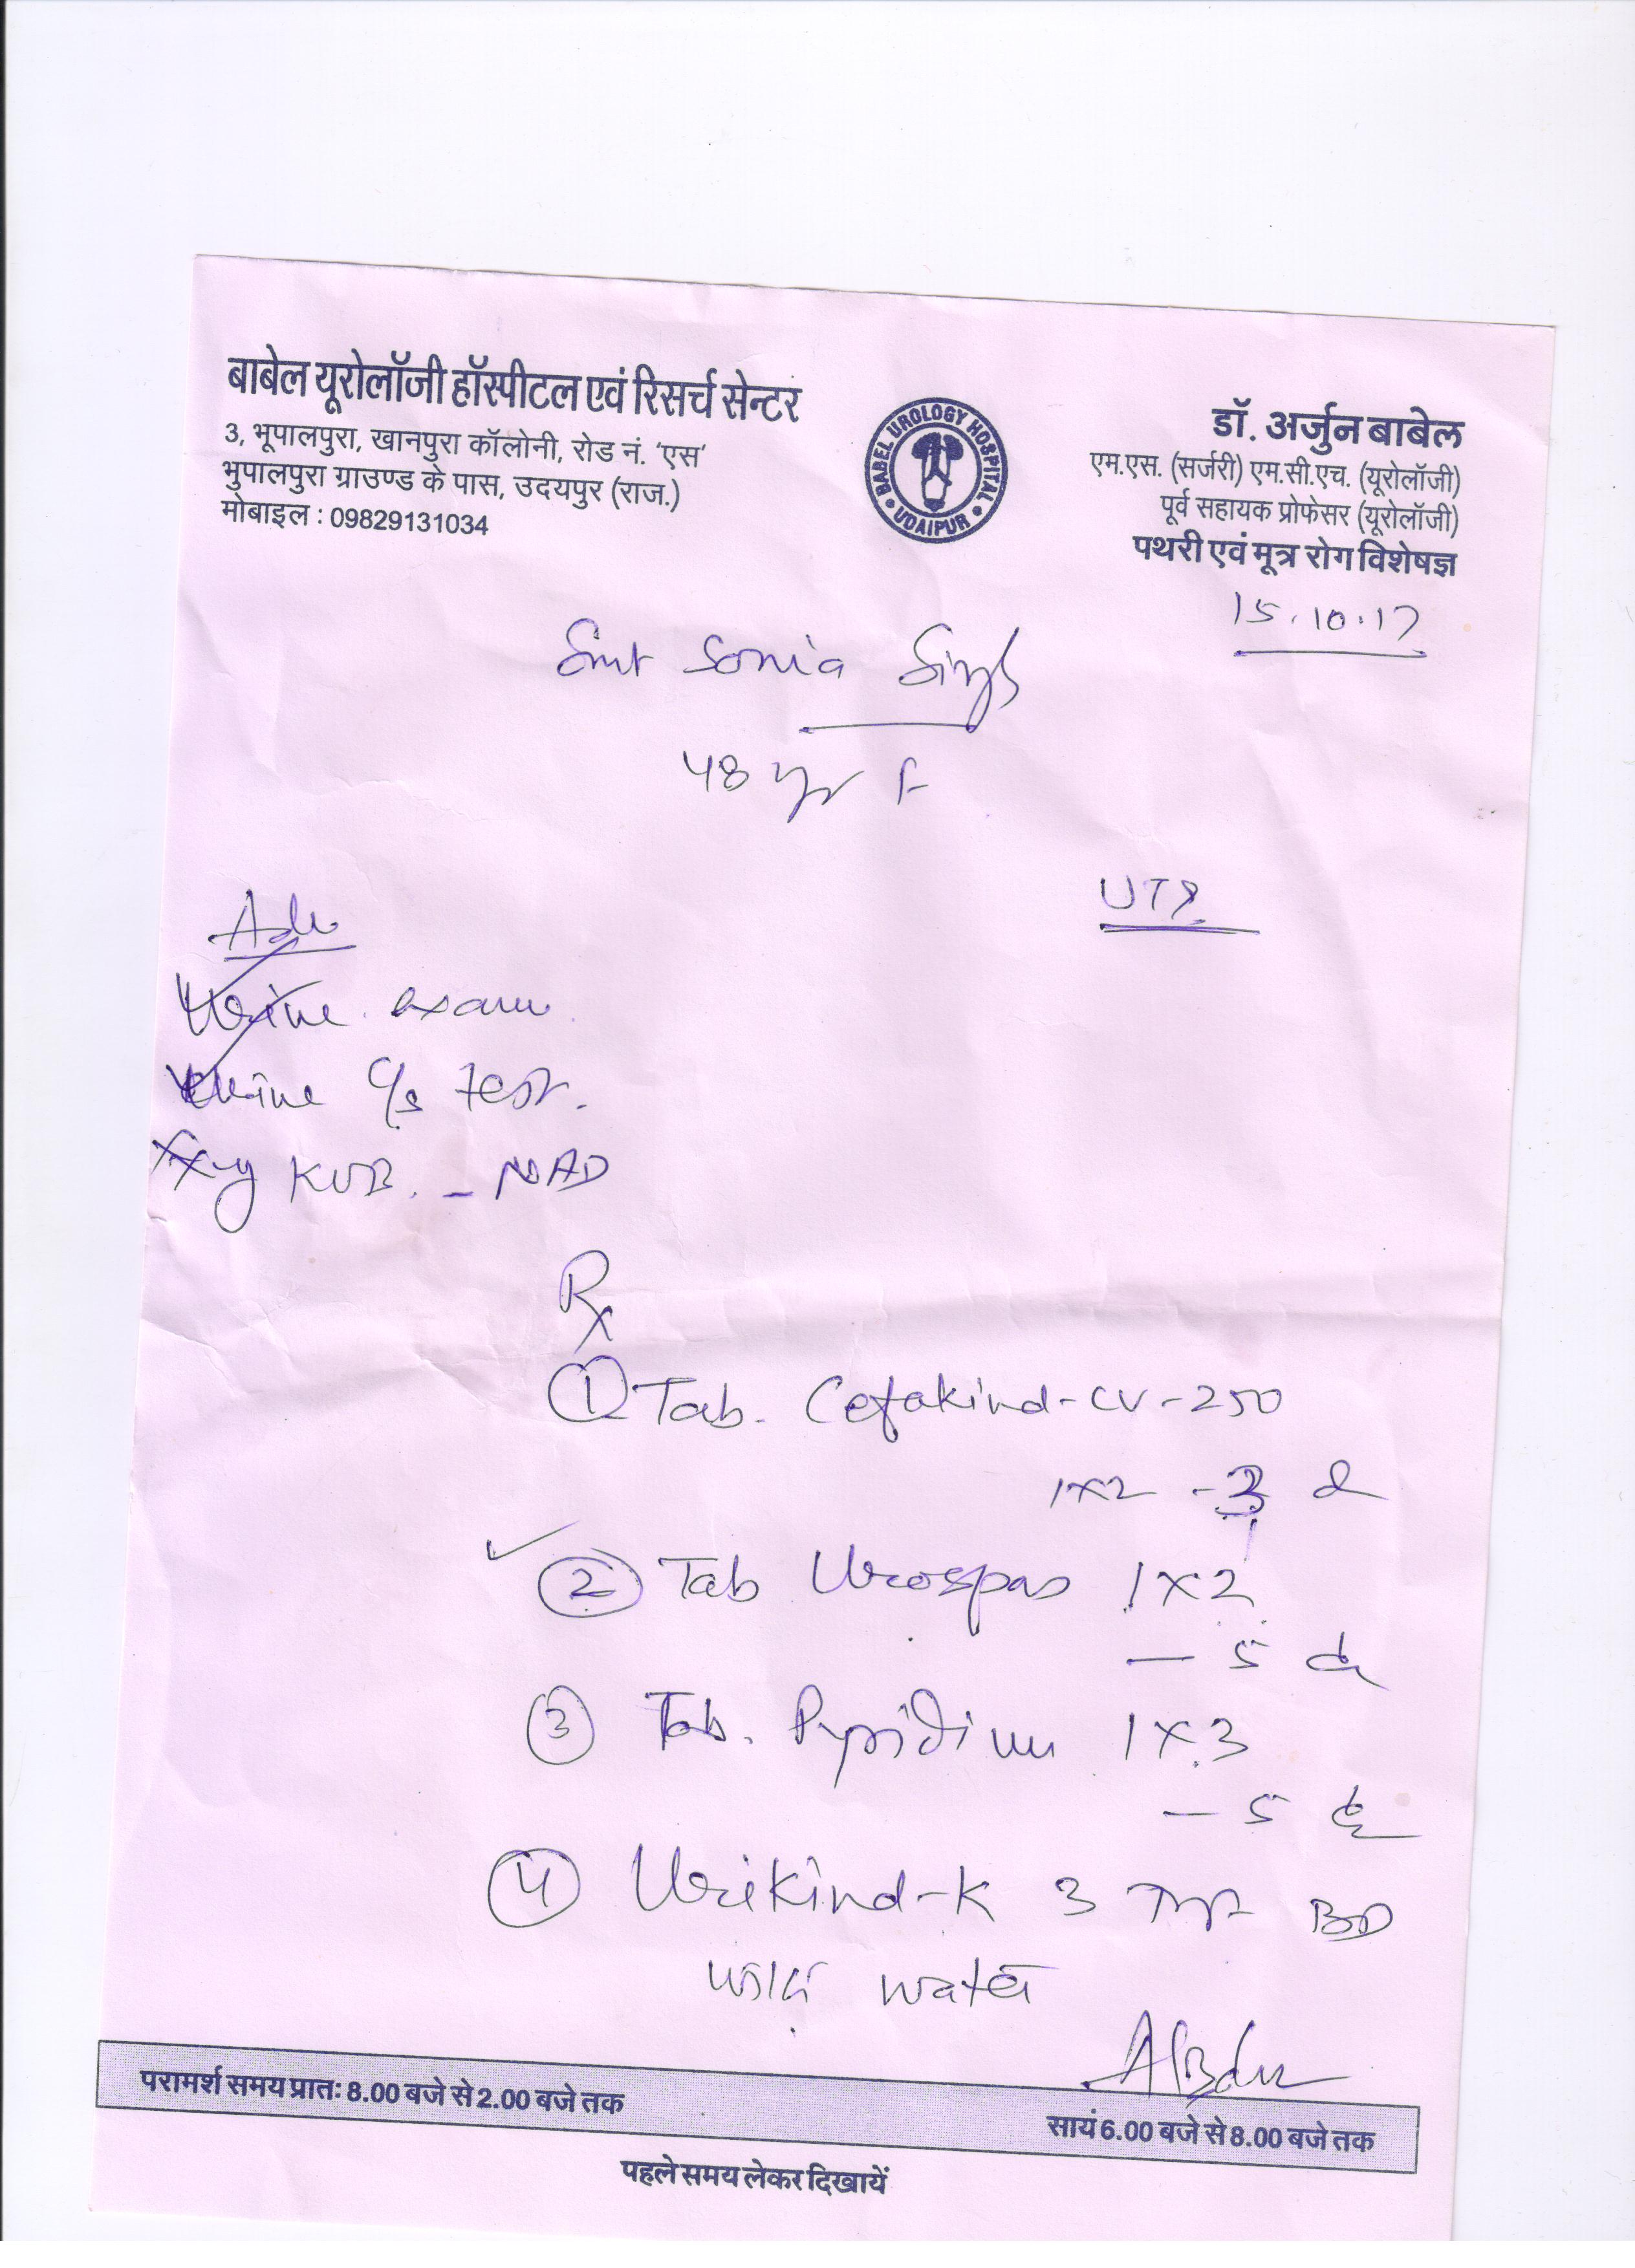 बाबेल यूरोलॉजी हॉस्पीटल एवं रिसर्च सेन्टर
3, भूपालपुरा, खानपुरा कॉलोनी, रोड नं. 'एस'
भुपालपुरा ग्राउण्ड के पास, उदयपुर (राज.)
मोबाइल : 09829131034
BABEL UROLOGY HOSPITAL
UDAIPUR
डॉ. अर्जुन बाबेल
एम.एस. (सर्जरी) एम.सी.एच. (यूरोलॉजी)
पूर्व सहायक प्रोफेसर (यूरोलॉजी)
पथरी एवं मूत्र रोग विशेषज्ञ
15.10.17
Smt Sonia Singh
48 yr F
UTI
Adv
Urine exam
Urine c/s test.
X-ray KUB. - NAD
Rx
① Tab. Cefakind-CV-250
1x2 - 3 d
② Tab Urospas 1x2
- 5 d
③ Tab. Pyridium 1x3
- 5 d
④ Urikind-K 3 TSF BD
with water
परामर्श समय प्रातः 8.00 बजे से 2.00 बजे तक
सायं 6.00 बजे से 8.00 बजे तक
पहले समय लेकर दिखायें